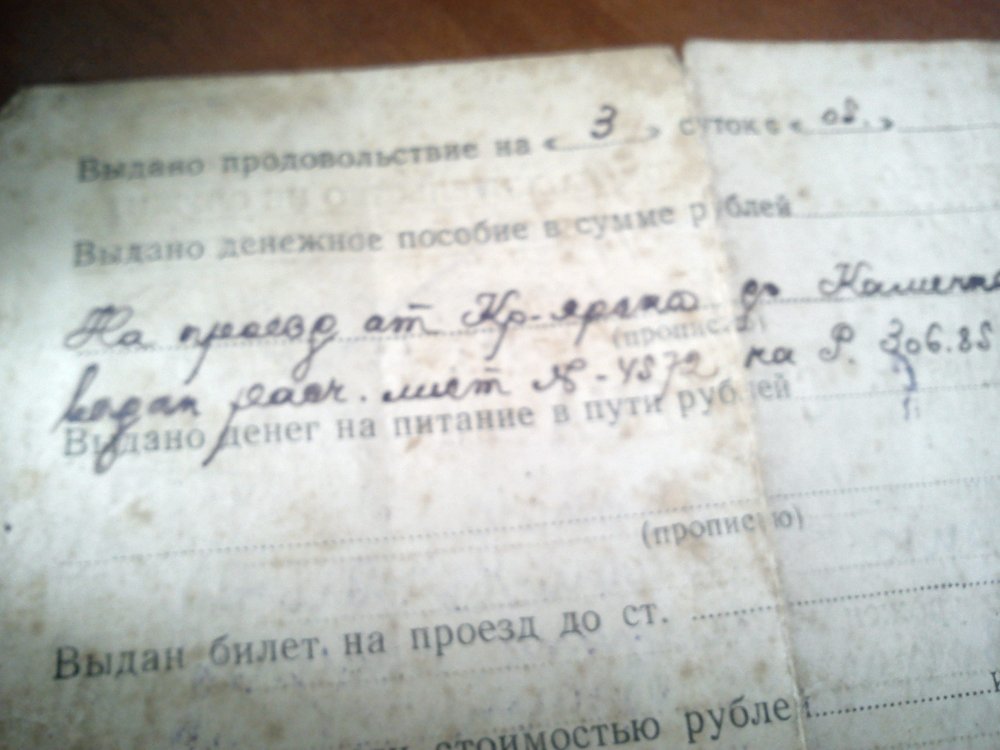 Выдано продовольствие на « 3 » суток с « 08. »
Выдано денежное пособие в сумме рублей
На проезд от Кр-ярска до
(прописью)
выдан лист № - 4572 на Р. 306.85
Выдано денег на питание в пути рублей
(прописью)
Выдан билет на проезд до ст.
стоимостью рублей